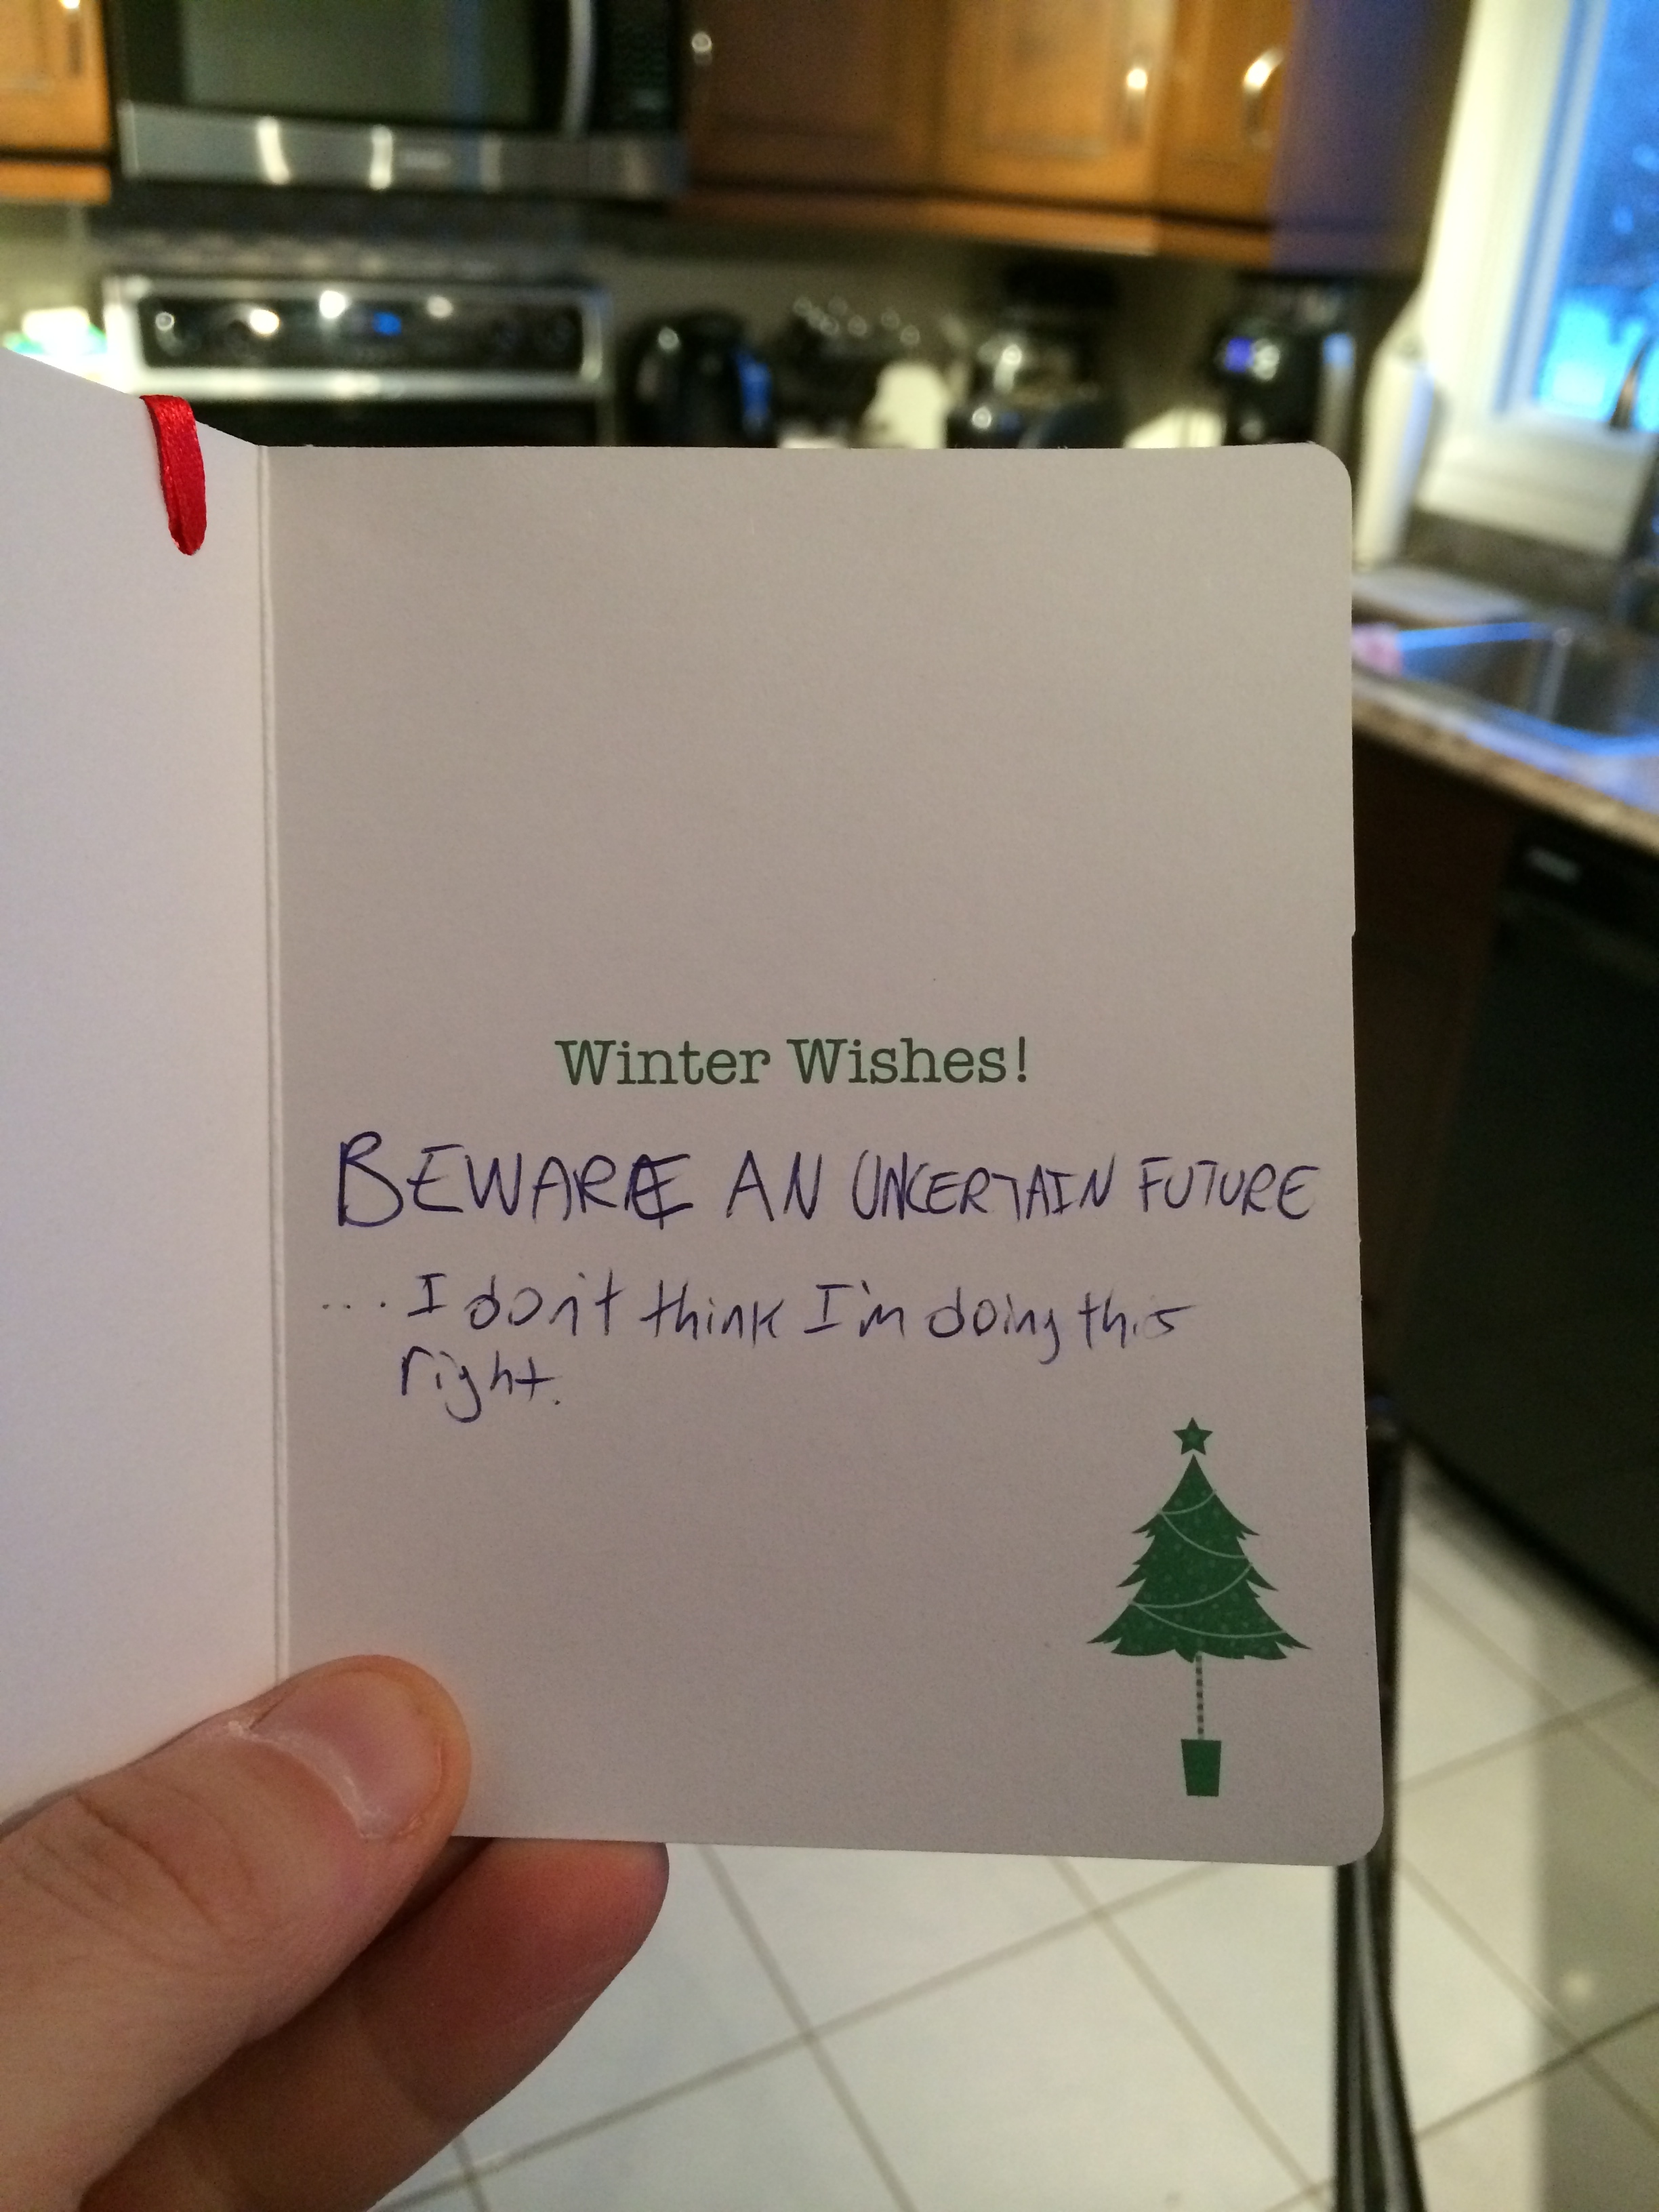 Winter Wishes!
BEWARE AN UNCERTAIN FUTURE
... I don't think I'm doing this
right.